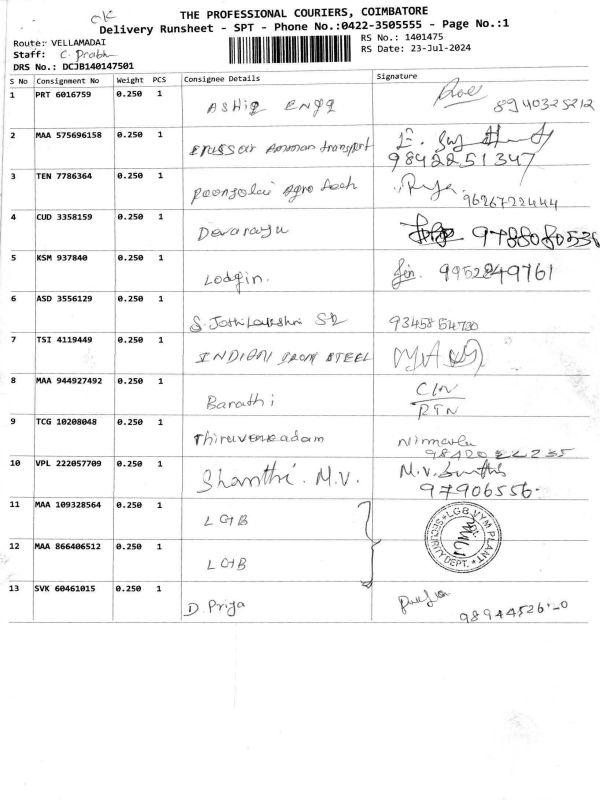 OK
THE PROFESSIONAL COURIERS, COIMBATORE
Delivery Runsheet - SPT - Phone No.:0422-3505555 - Page No.:1
Route: VELLAMADAI
RS No.: 1401475
Staff: C. Prabh
RS Date: 23-Jul-2024
DRS No.: DCJB140147501
S No Consignment No Weight PCS Consignee Details Signature
1 PRT 6016759 0.250 1 ASHIQ ENGG 8940325212
2 MAA 575696158 0.250 1 Amman transport 9842251347
3 TEN 7786364 0.250 1 Poongolai Agro Tech 9626722444
4 CUD 3358159 0.250 1 Devaraju 9788080536
5 KSM 937840 0.250 1 Lodgin. 9952849761
6 ASD 3556129 0.250 1 S. JothiLakshmi 9345854730
7 TSI 4119449 0.250 1 INDIAN IRON STEEL
8 MAA 944927492 0.250 1 Barathi
RTN
9 TCG 10208048 0.250 1 Thiruvenkadam Nirmala
10 VPL 222057709 0.250 1 Shanthi. M.V. M.V.
97906556
11 MAA 109328564 0.250 1 LGB
LGB VYM PLANT
SECURITY DEPT.
12 MAA 866406512 0.250 1 LGB
13 SVK 60461015 0.250 1 D. Priya